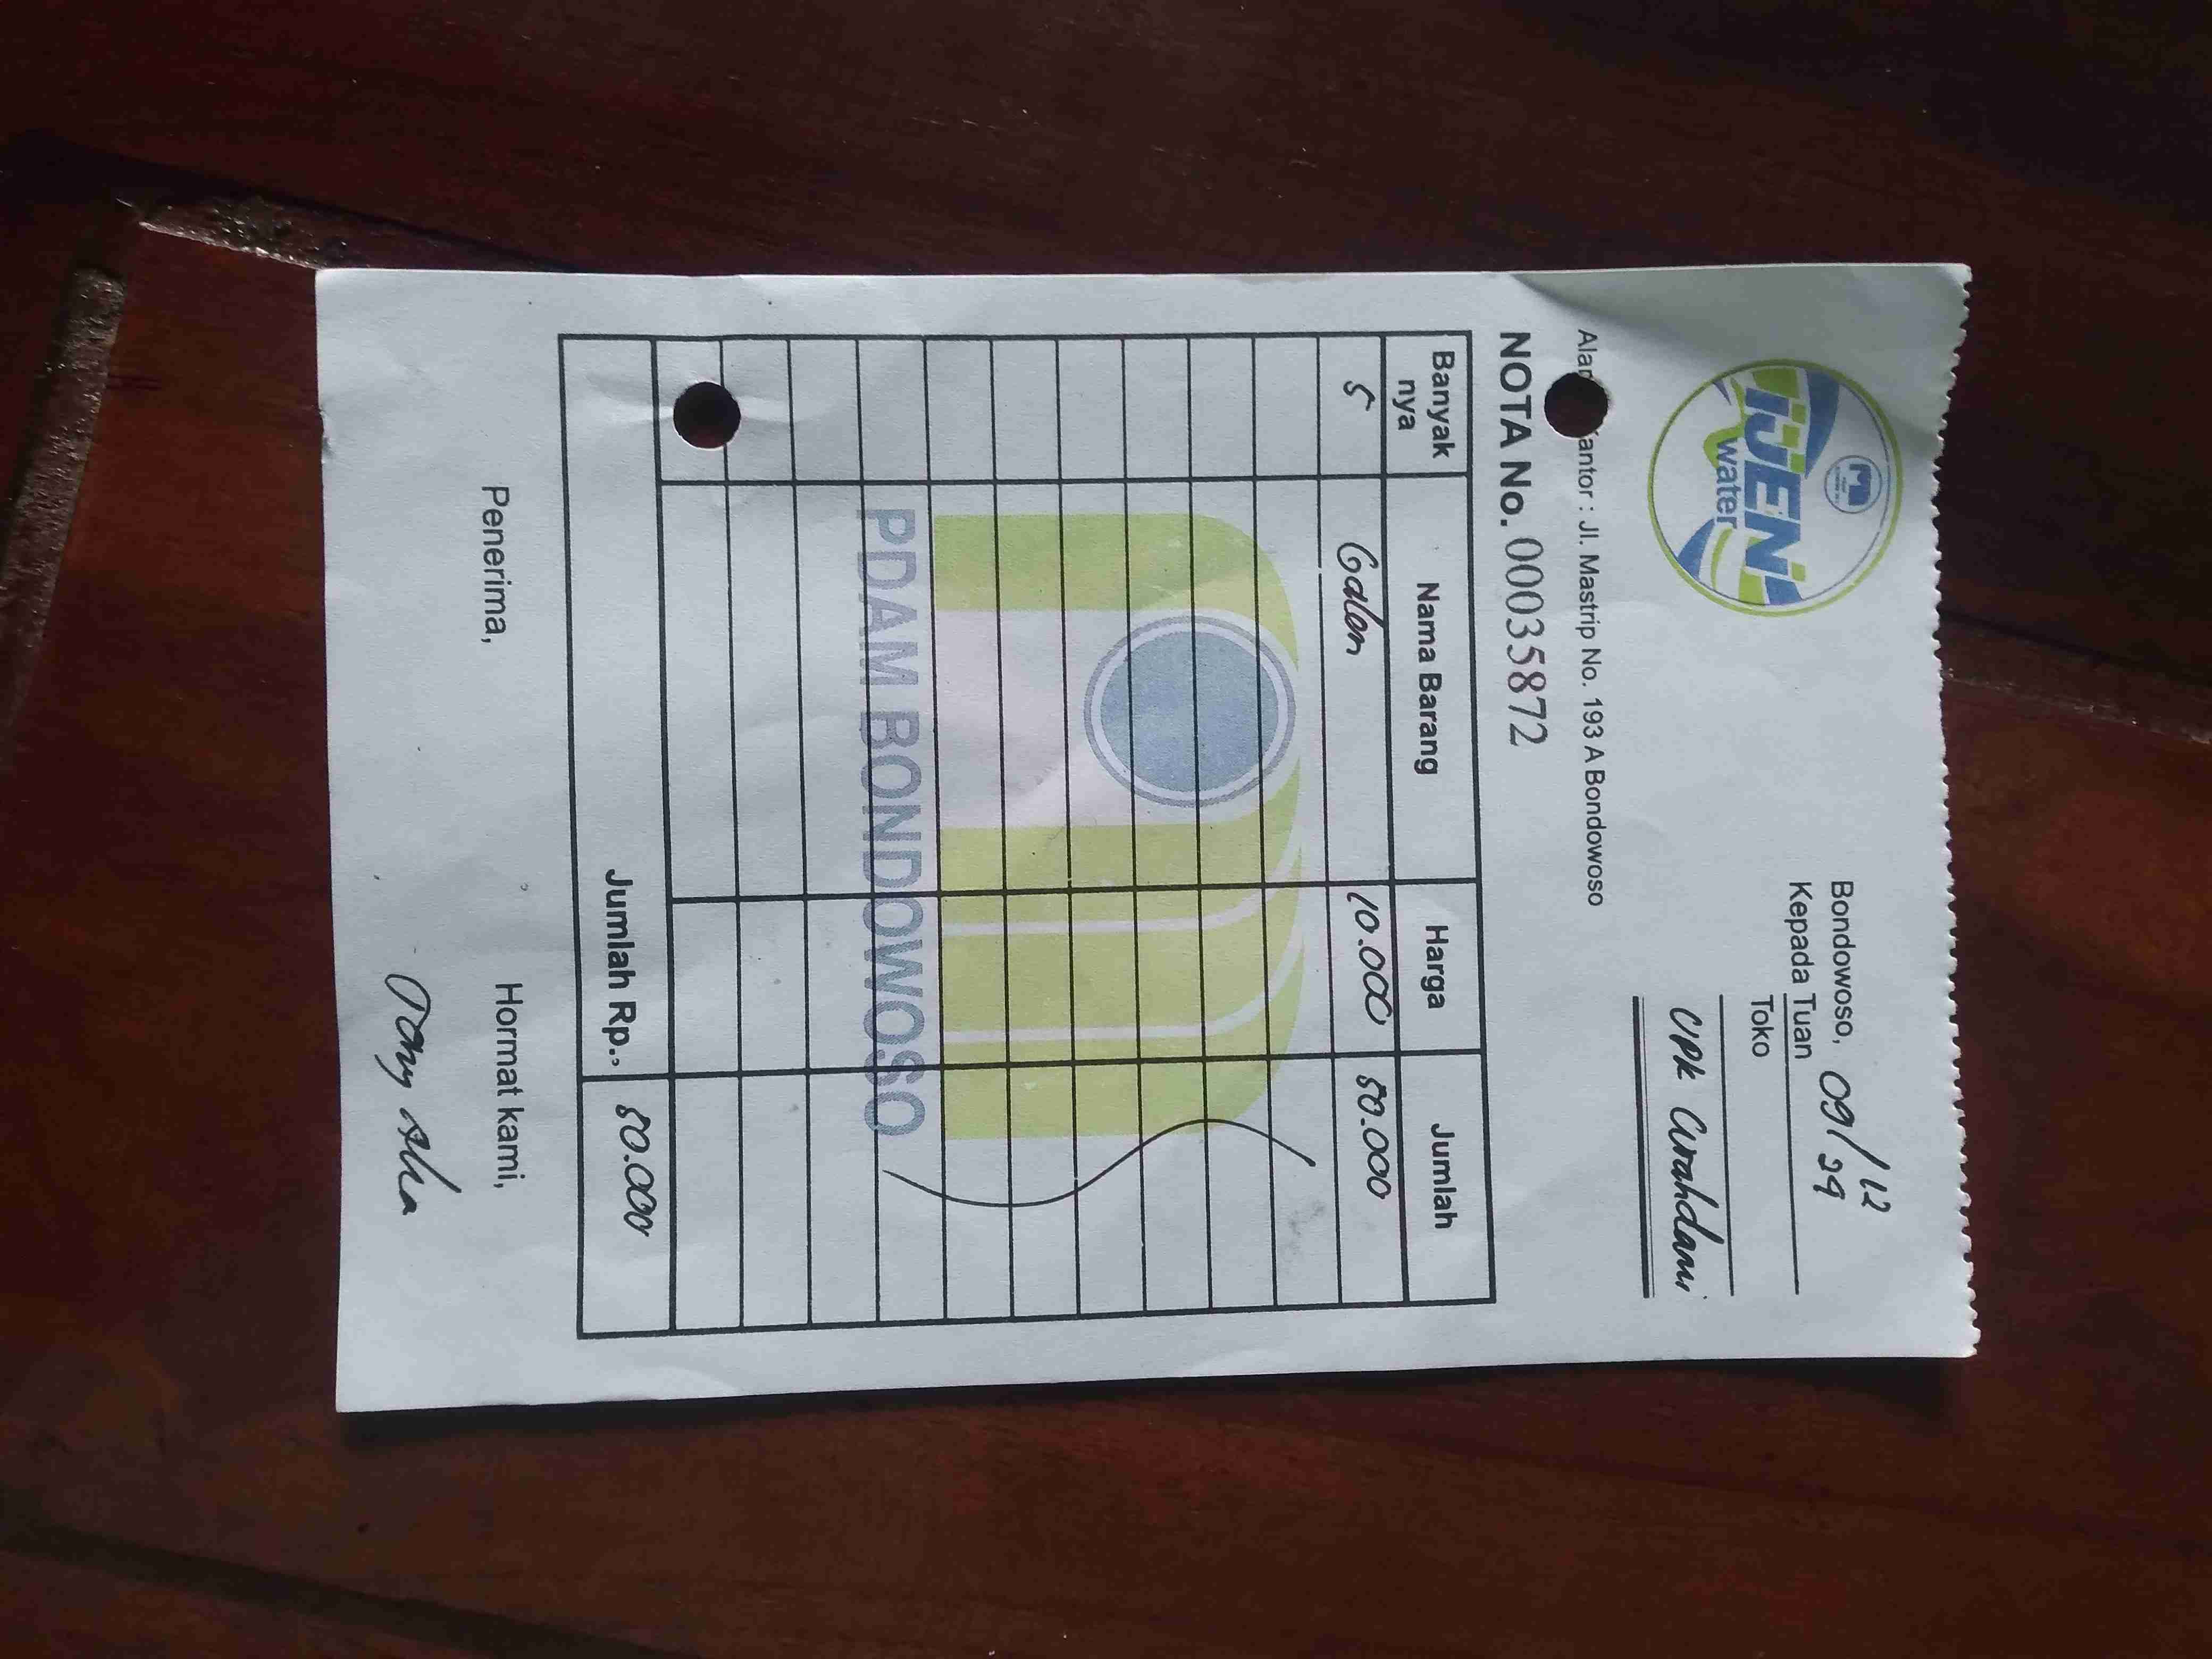 IJEN
water
Bondowoso, 09/12
29
Kepada Tuan
Toko
UPK Curahdami
Kantor : Jl. Mastrip No. 193 A Bondowoso
NOTA No. 00035872
Banyak nya Nama Barang Harga Jumlah
5 Galon 10.000 50.000
PDAM BONDOWOSO
Jumlah Rp., 50.000
Penerima, Hormat kami,